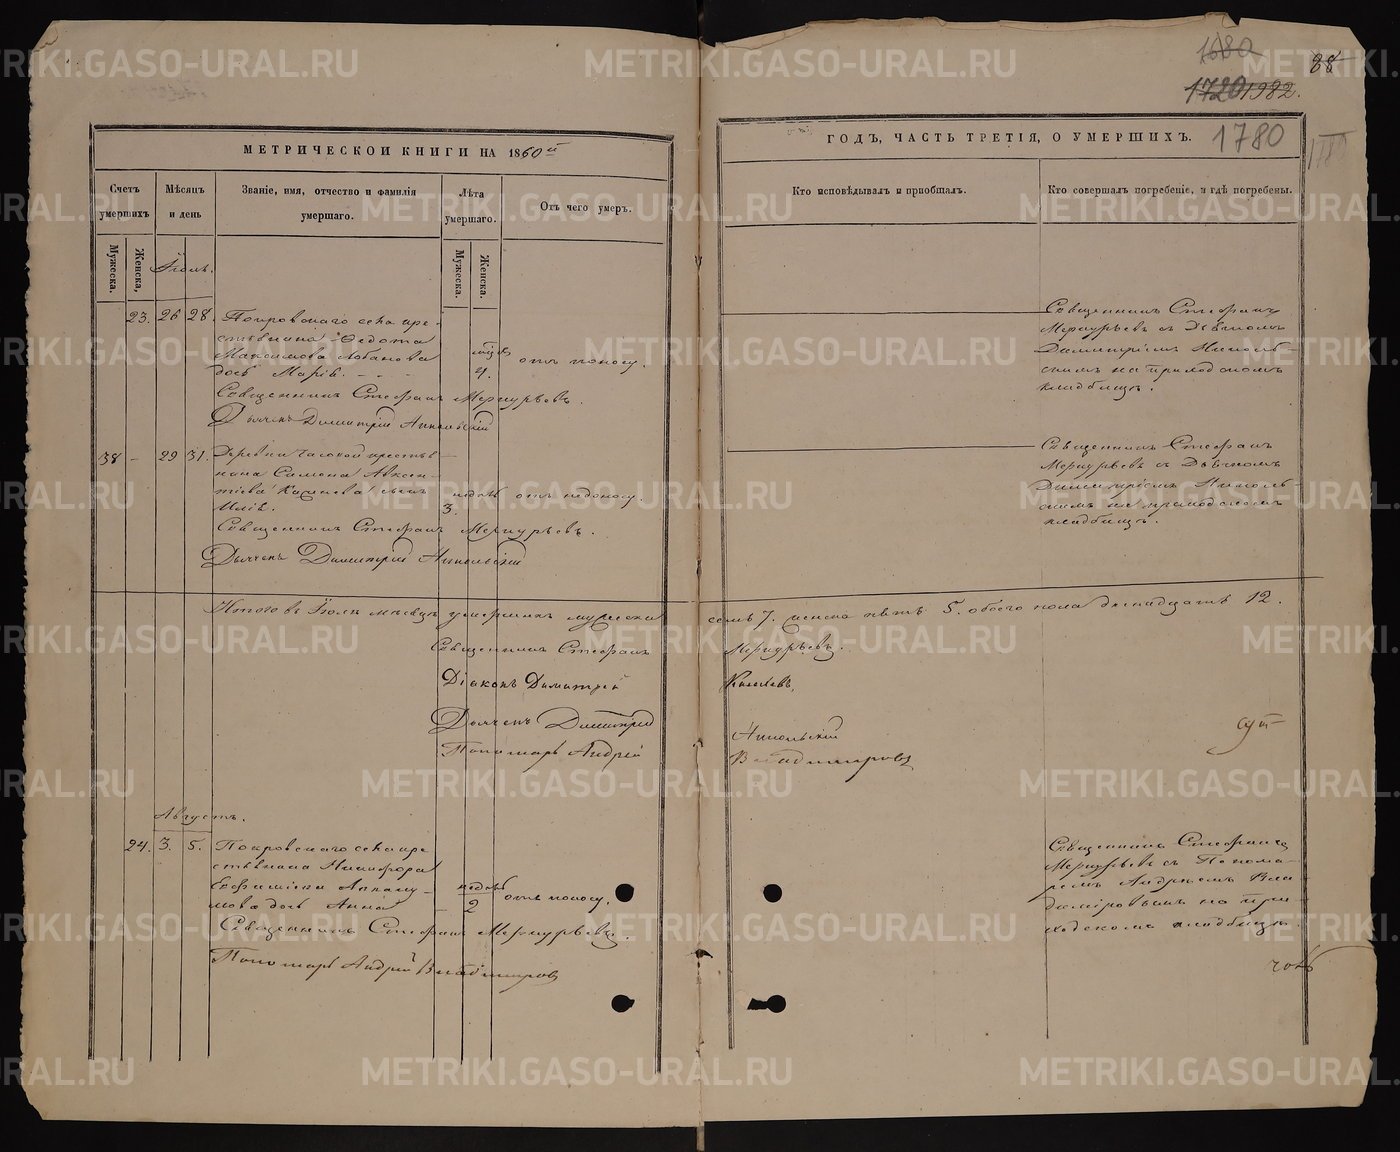 1680
1720 1982.
88
1780
МЕТРИЧЕСКОЙ КНИГИ НА 1860й
Счетъ умершихъ
Мужеска.
Женска,
Мѣсяцъ и день
Званіе, имя, отчество и фамилія умершаго.
Лѣта умершаго.
Мужеска.
Женска.
Отъ чего умеръ.
Іюль.
23. 26 28. Покровскаго села кре-
стьянина Федота
Максимова Лобанова
дочь Марія.
4.
отъ поносу.
Священникъ Стефанъ Меркурьевъ.
Дьячекъ Димитрій Никольскій
38 - 29 31. Деревни Часовой крестья-
нина Симеона Авксен-
тіева сынъ
Илія.
недѣль
3.
отъ
Священникъ Стефанъ Меркурьевъ.
Дьячекъ Димитрій Никольскій
Итого въ Іюлѣ мѣсяцѣ умершихъ мужеска
Священникъ Стефанъ
Діаконъ Димитрій
Дьячекъ Димитрій
Пономарь Андрей
Августъ.
24. 3. 5. Покровскаго села кре-
стьянина Никифора
дочь Анна
недѣль
2
отъ поносу.
Священникъ Стефанъ Меркурьевъ.
Пономарь Андрей Владимировъ
ГОДЪ, ЧАСТЬ ТРЕТІЯ, О УМЕРШИХЪ.
Кто исповѣдывалъ и пріобщалъ.
Кто совершалъ погребеніе, и гдѣ погребены.
Священникъ Стефанъ
Меркурьевъ съ Дьячкомъ
Димитріемъ Николь-
скимъ на приходскомъ
кладбищѣ.
Священникъ Стефанъ
Меркурьевъ съ Дьячкомъ
Димитріемъ Николь-
скимъ на приходскомъ
кладбищѣ.
семь 7. женска пять 5. обоего пола двенадцать 12.
Меркурьевъ.
Никольскій
Владимировъ
Священникъ Стефанъ
Меркурьевъ съ Понома-
ремъ Андреемъ Вла-
димировымъ на при-
ходскомъ кладбищѣ.
METRIKI.GASO-URAL.RU